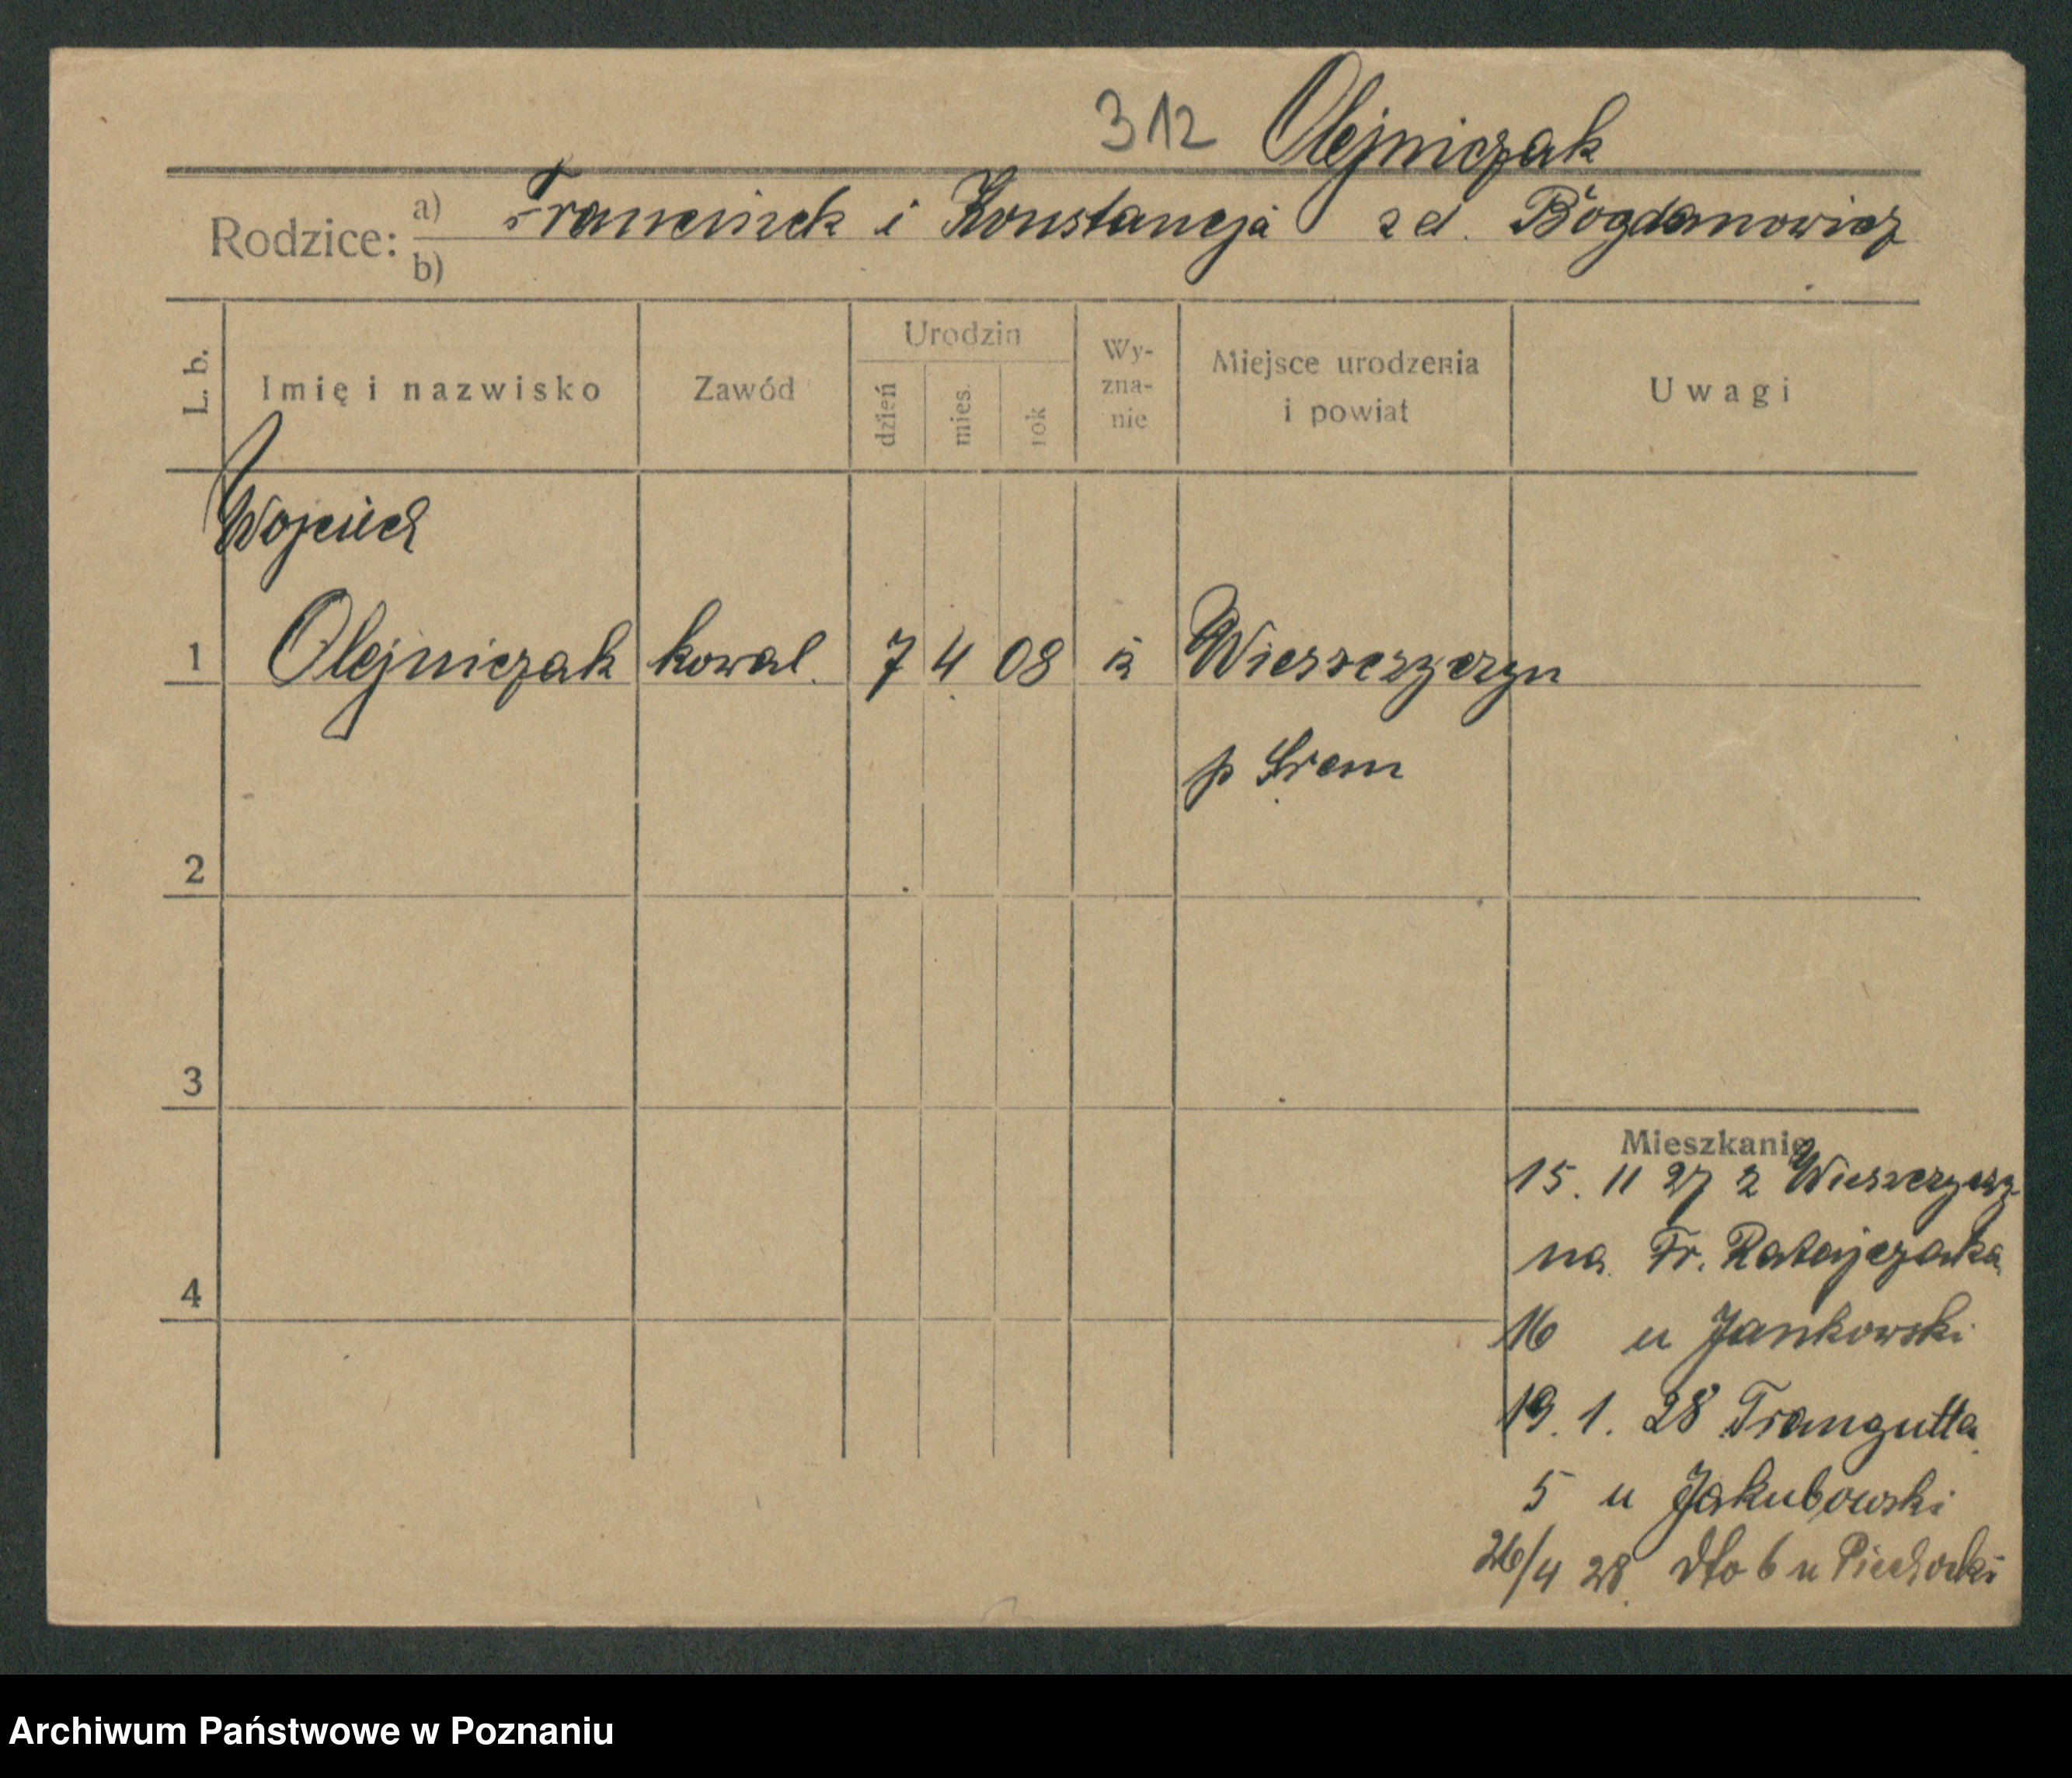 312 Olejniczak
Rodzice: a) Franciszek i Konstancja z d. Bogdanowicz
b)
L. b.
Imię i nazwisko
Zawód
Urodzin
dzień
mies.
rok
Wy-
zna-
nie
Miejsce urodzenia
i powiat
Uwagi
Wojciech
1 Olejniczak kowal. 7 4 08 Wieszczyczyn
p Śrem
2
3
4
Mieszkanie
15. 11 27 z Wieszczycz.
na Fr. Ratajczaka
16 u Jankowski
19. 1. 28 Traugutta
5 u Jakubowski
26/4 28. dto 6 u Piechocki
Archiwum Państwowe w Poznaniu